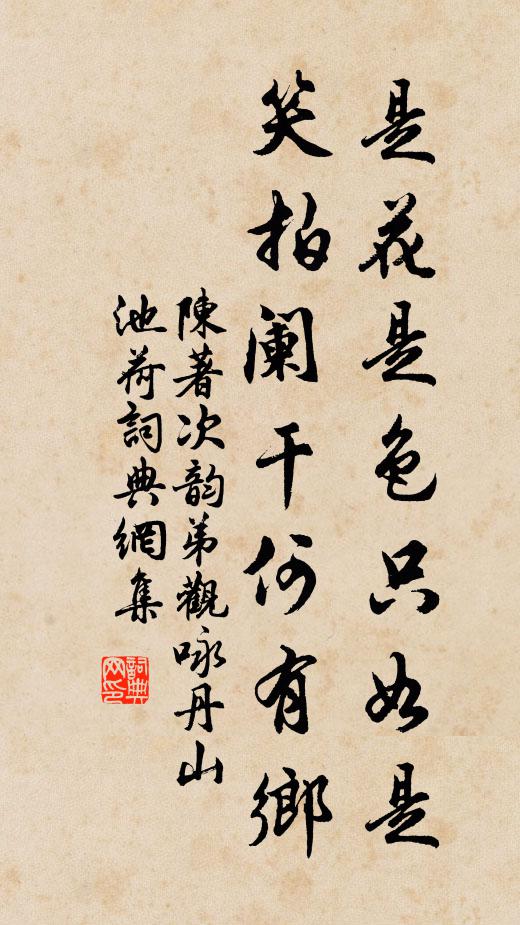 是花是色只如是
笑拍阑干何有鄉
陳著次韵弟觀咏丹山
池荷詞典網集
詞典网印